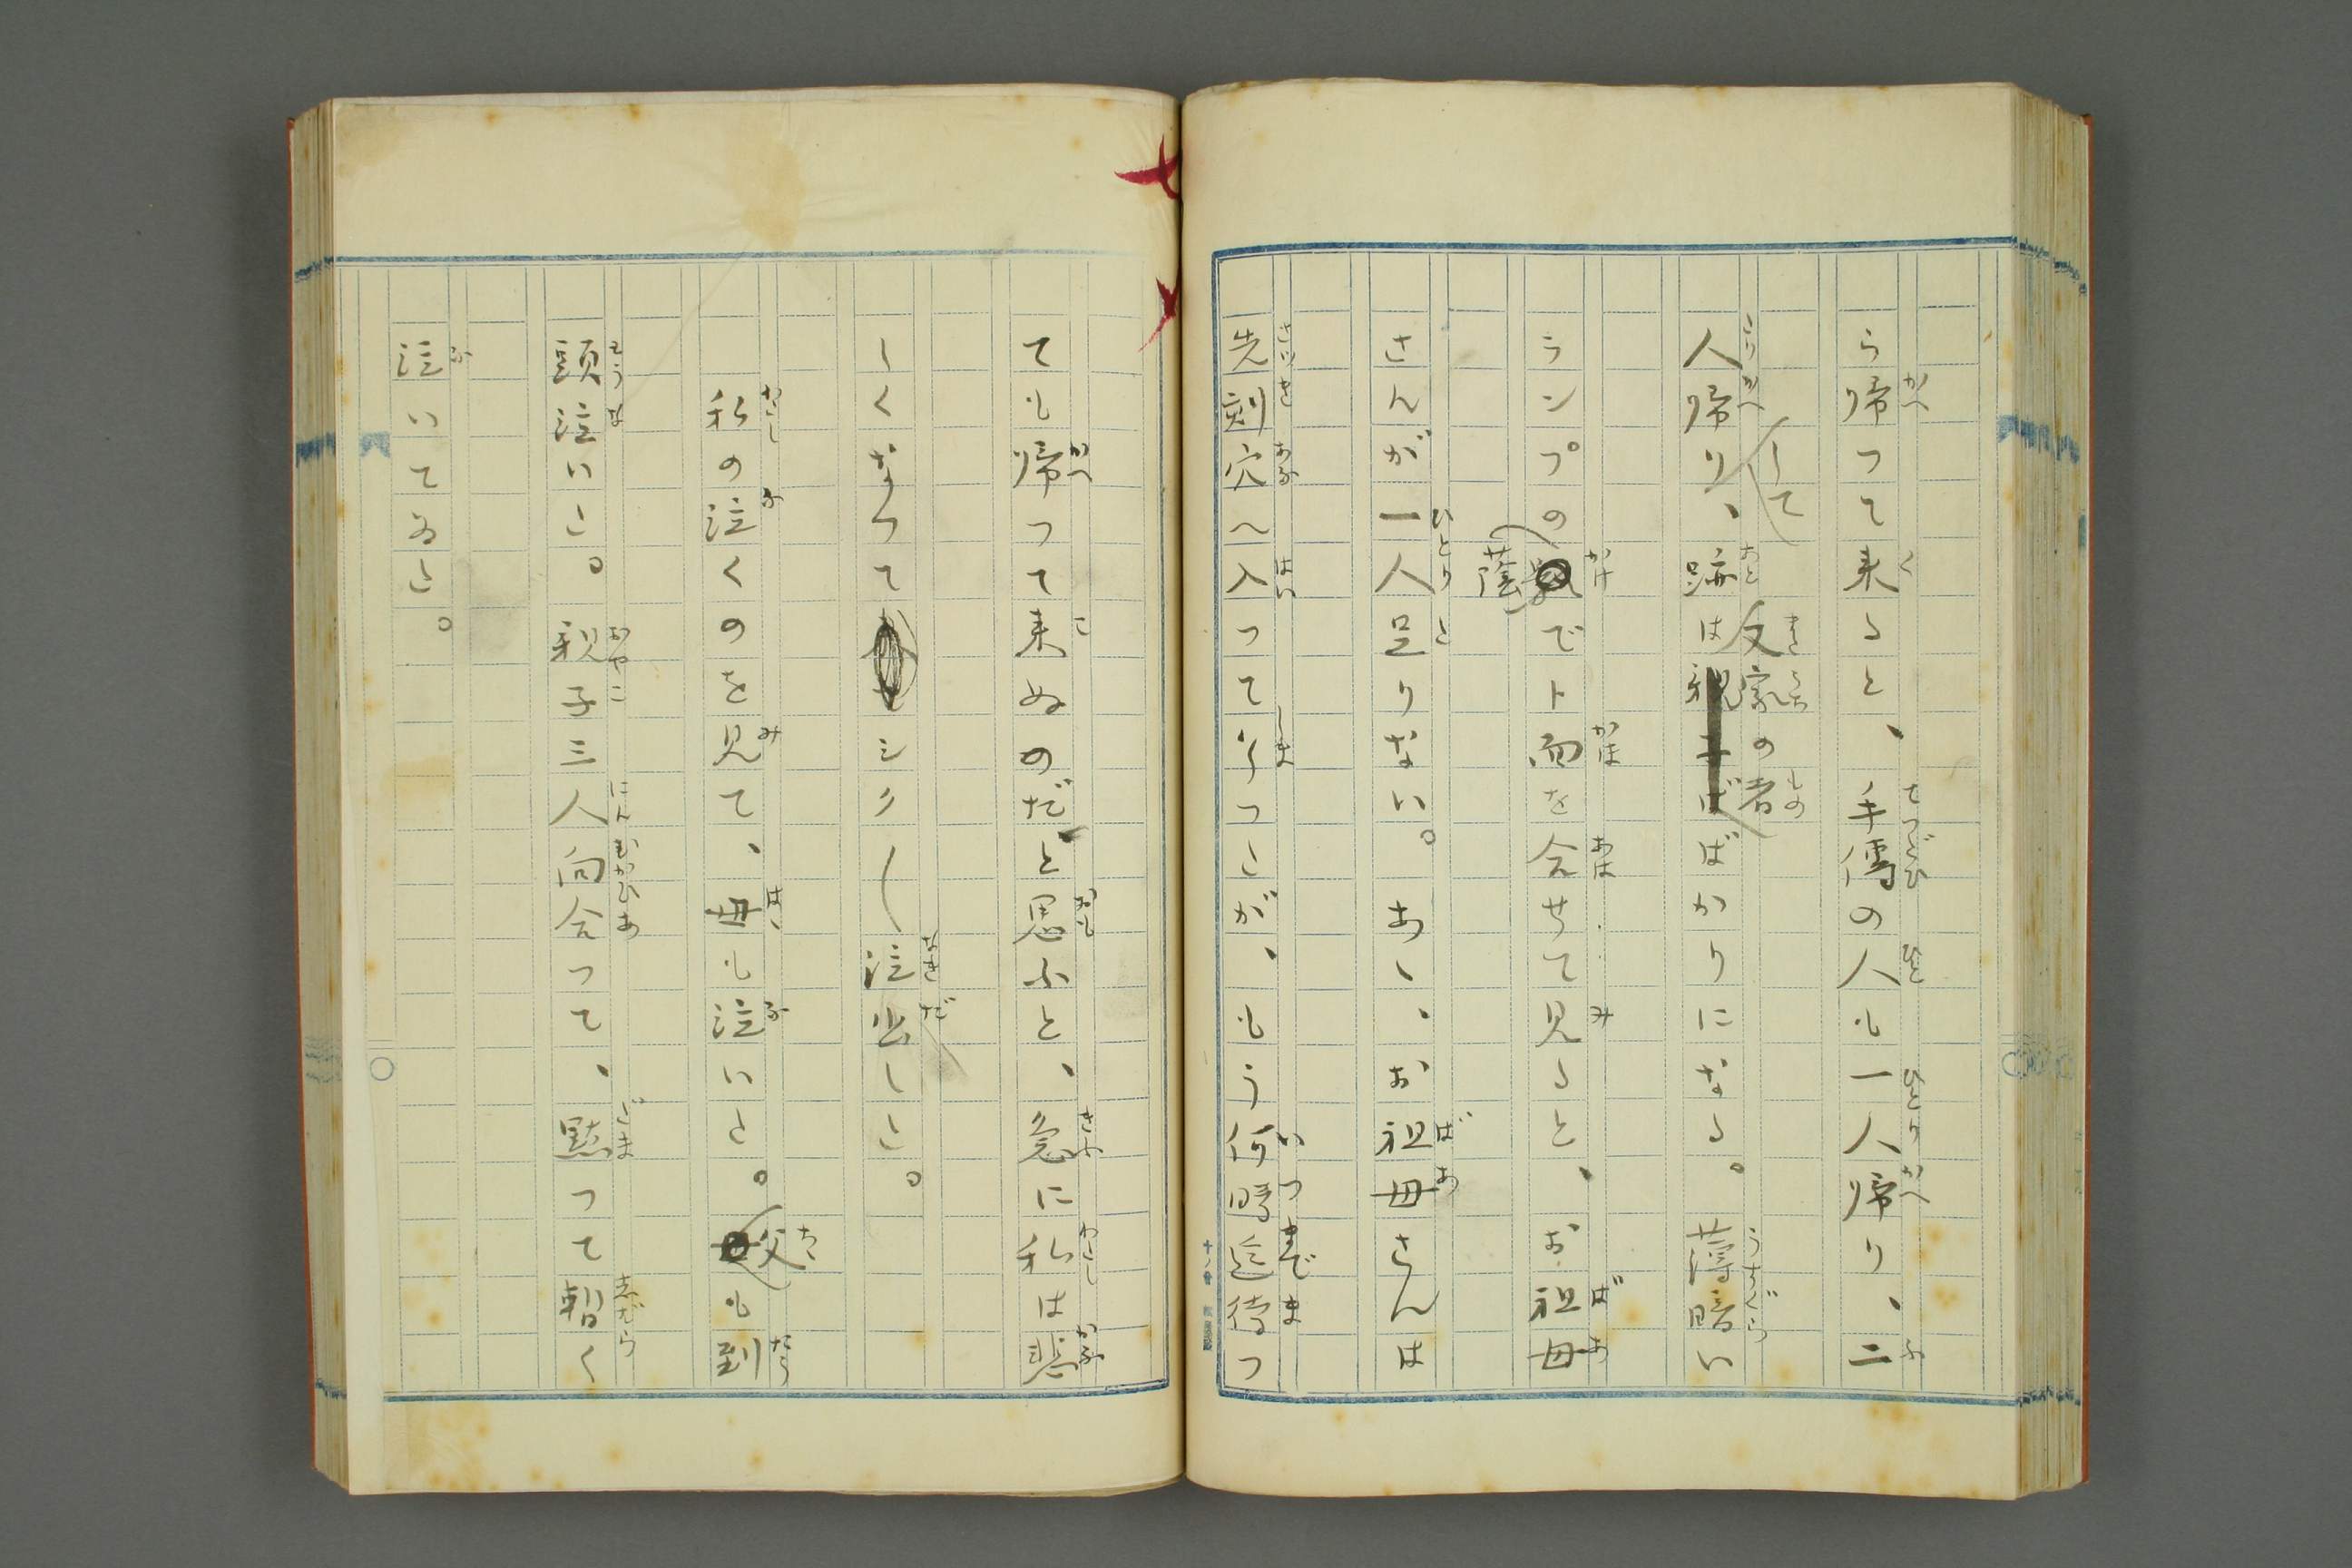 ら帰つて来ると、手伝の人も一人帰り、二
人帰りして、跡は又家の者ばかりになる。薄暗い
ランプの蔭でト面を合せて見ると、お祖母
さんが一人足りない。あゝ、お祖母さんは
先刻穴へ入つて了つたが、もう何時迄待つ
ても帰つて来ぬのだと思ふと、急に私は悲
しくなつてシク〳〵泣出した。
私の泣くのを見て、母も泣いた。父も到
頭泣いた。親子三人向合つて、黙つて暫く
泣いてゐた。